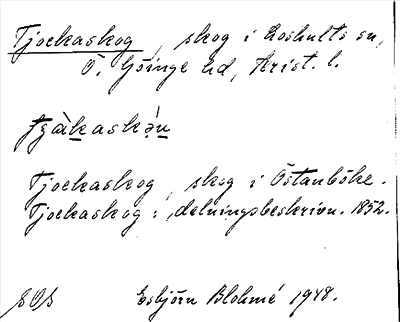 Tjockaskog, skog i Loshults sn,
Ö. Göinge hd, Krist. l.
Tjockaskog, skog i Östanböke.
Tjockaskog: delningsbeskrivn. 1852.
SOS Esbjörn Blohmé 1948.